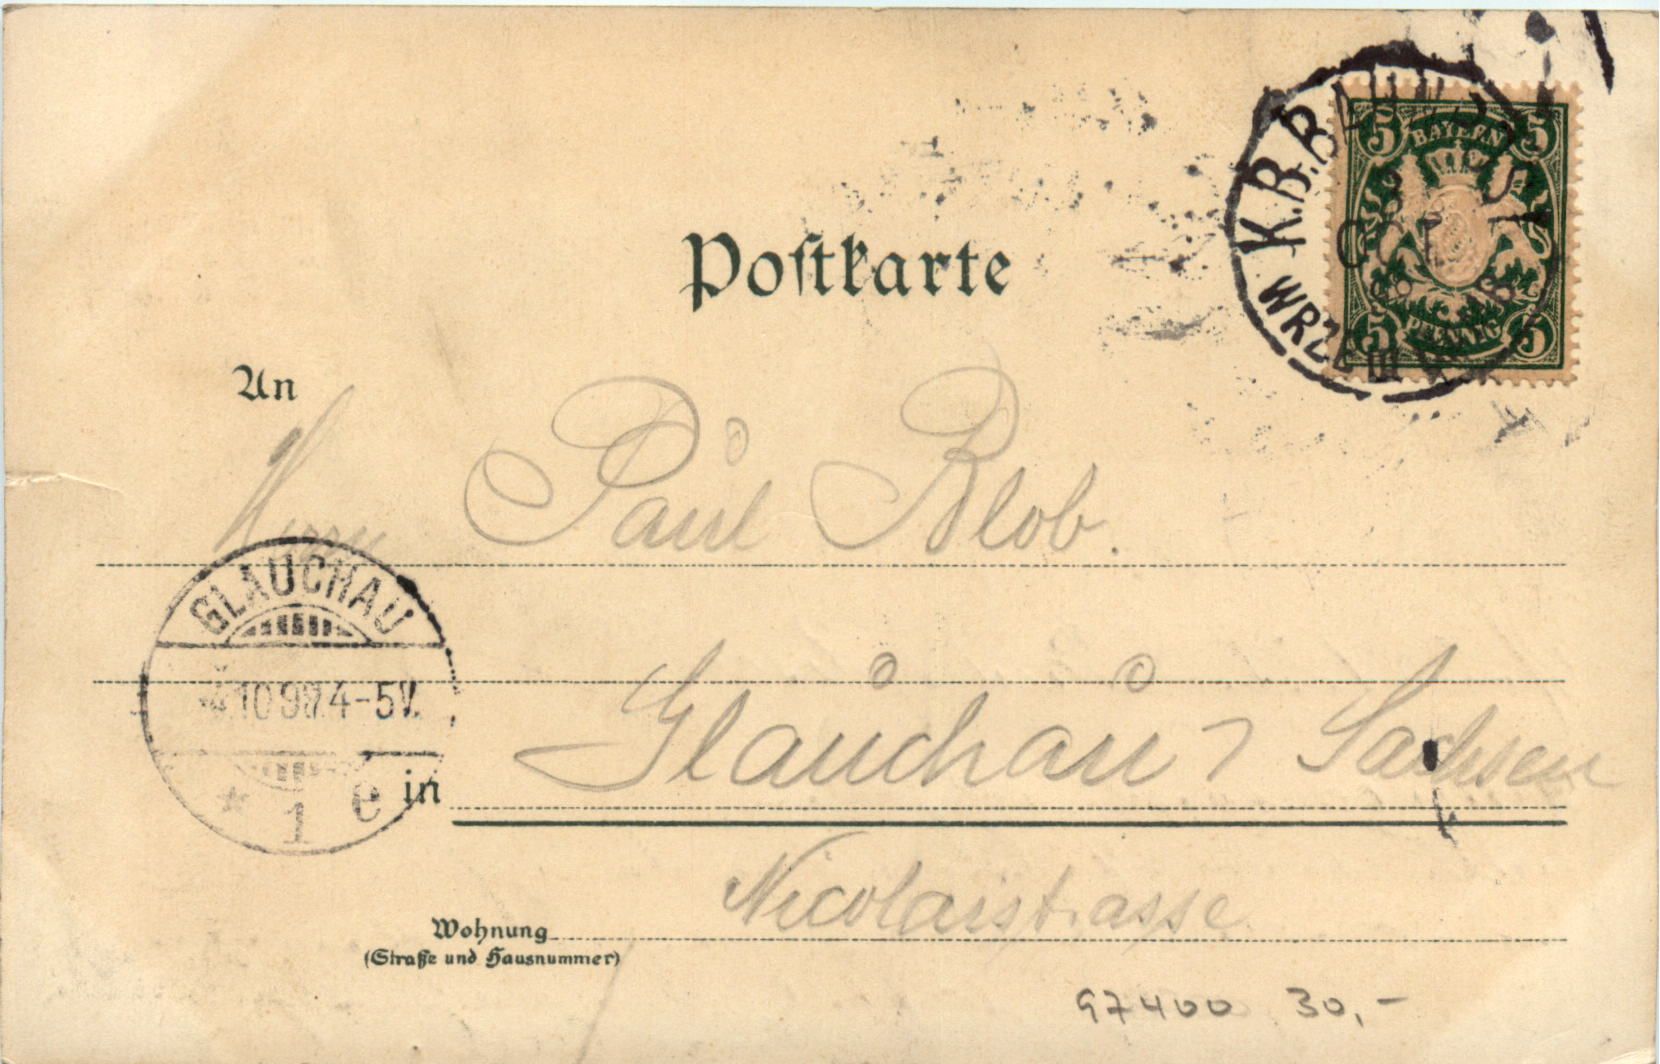 K.B.BAHNPOST
3
OCT
98
WRZB III
5 BAYERN 5
5 PFENNIG 5
Postkarte
An
Herrn Paul Blob.
GLAUCHAU
4 10 98 4-5V.
* 1 e
Glauchau / Sachsen
in
Nicolaistrasse
Wohnung
(Straße und Hausnummer)
97400 30,-